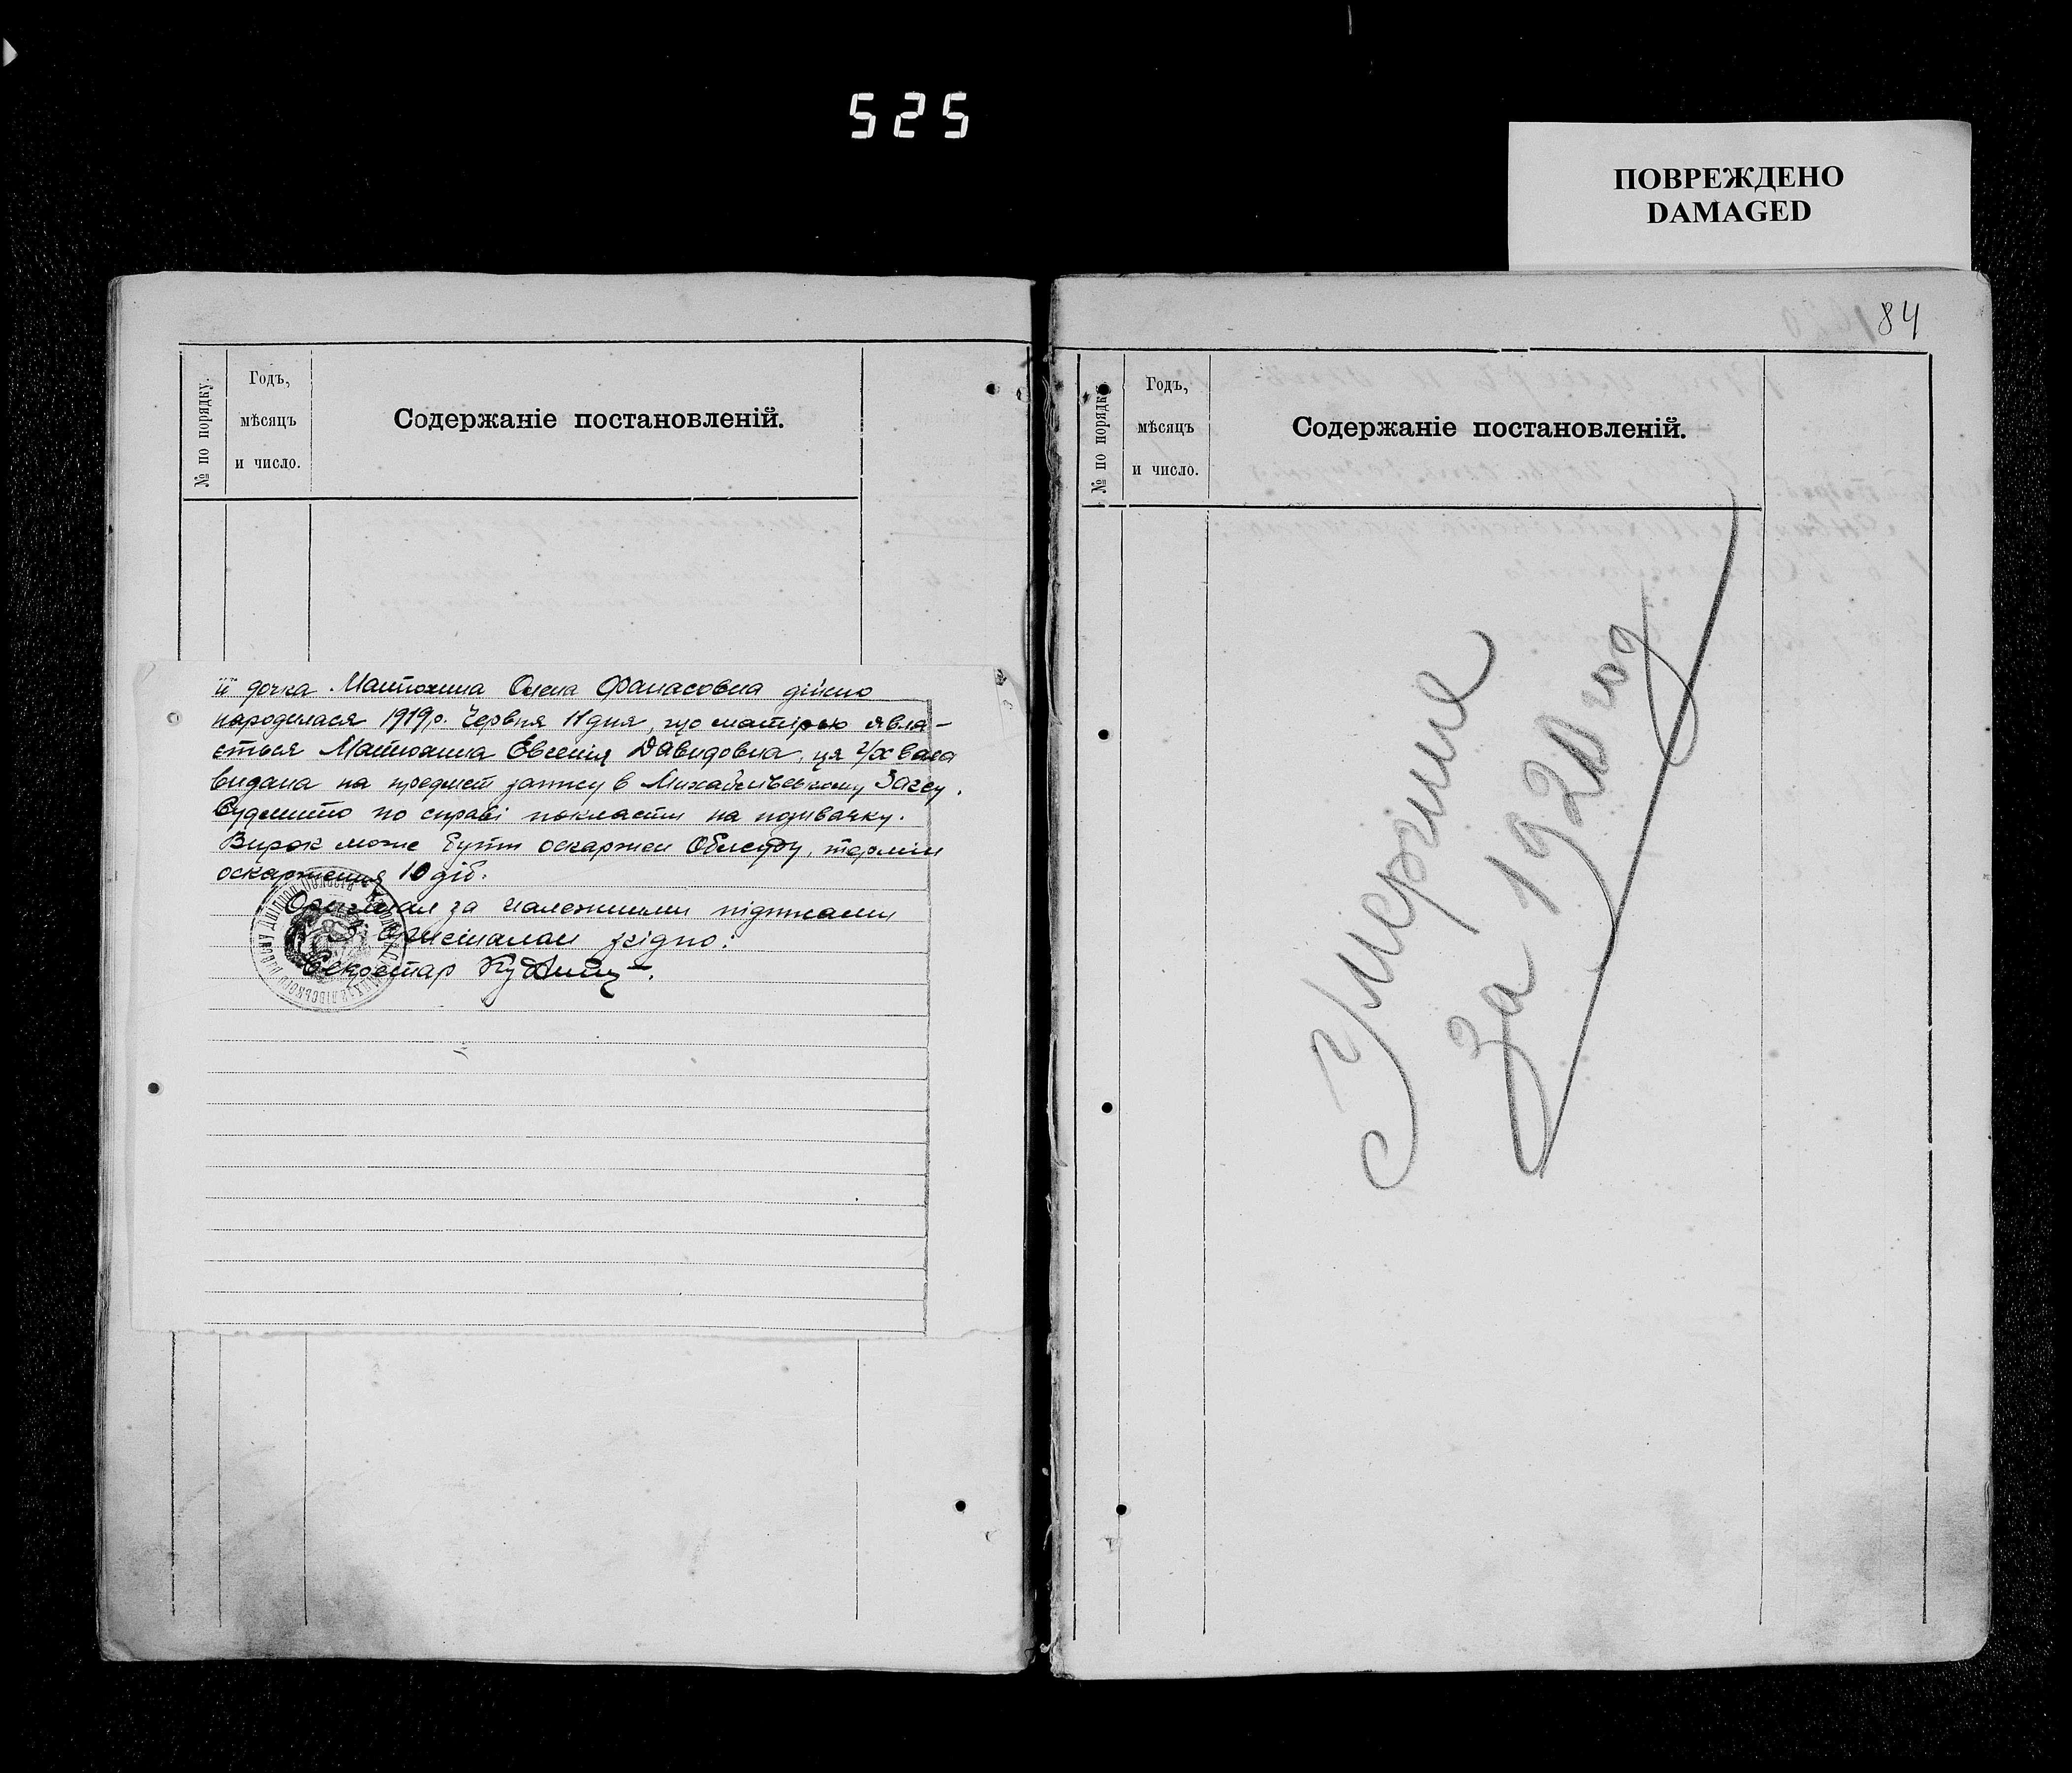 525
ПОВРЕЖДЕНО
DAMAGED
№ по порядку.
Годъ,
мѣсяцъ
и число.
Содержаніе постановленій.
її дочка Матюхина Олена Фанасовна дійсно
народилася 1919 р. Червня 11 дня, що матірью явля-
ється Матюхина Евгенія Давидовна, ця ухвала
видана на предмет запису в Михайлівському Загсу.
Судмито по справі покласти на позивачку.
Вирок може бути оскаржен Облсуду, термін
оскарження 10 діб.
Оригінал за належними підписами
З оригіналом згідно:
Секретар
84
№ по порядку.
Годъ,
мѣсяцъ
и число.
Содержаніе постановленій.
Умершие
за 1920 год